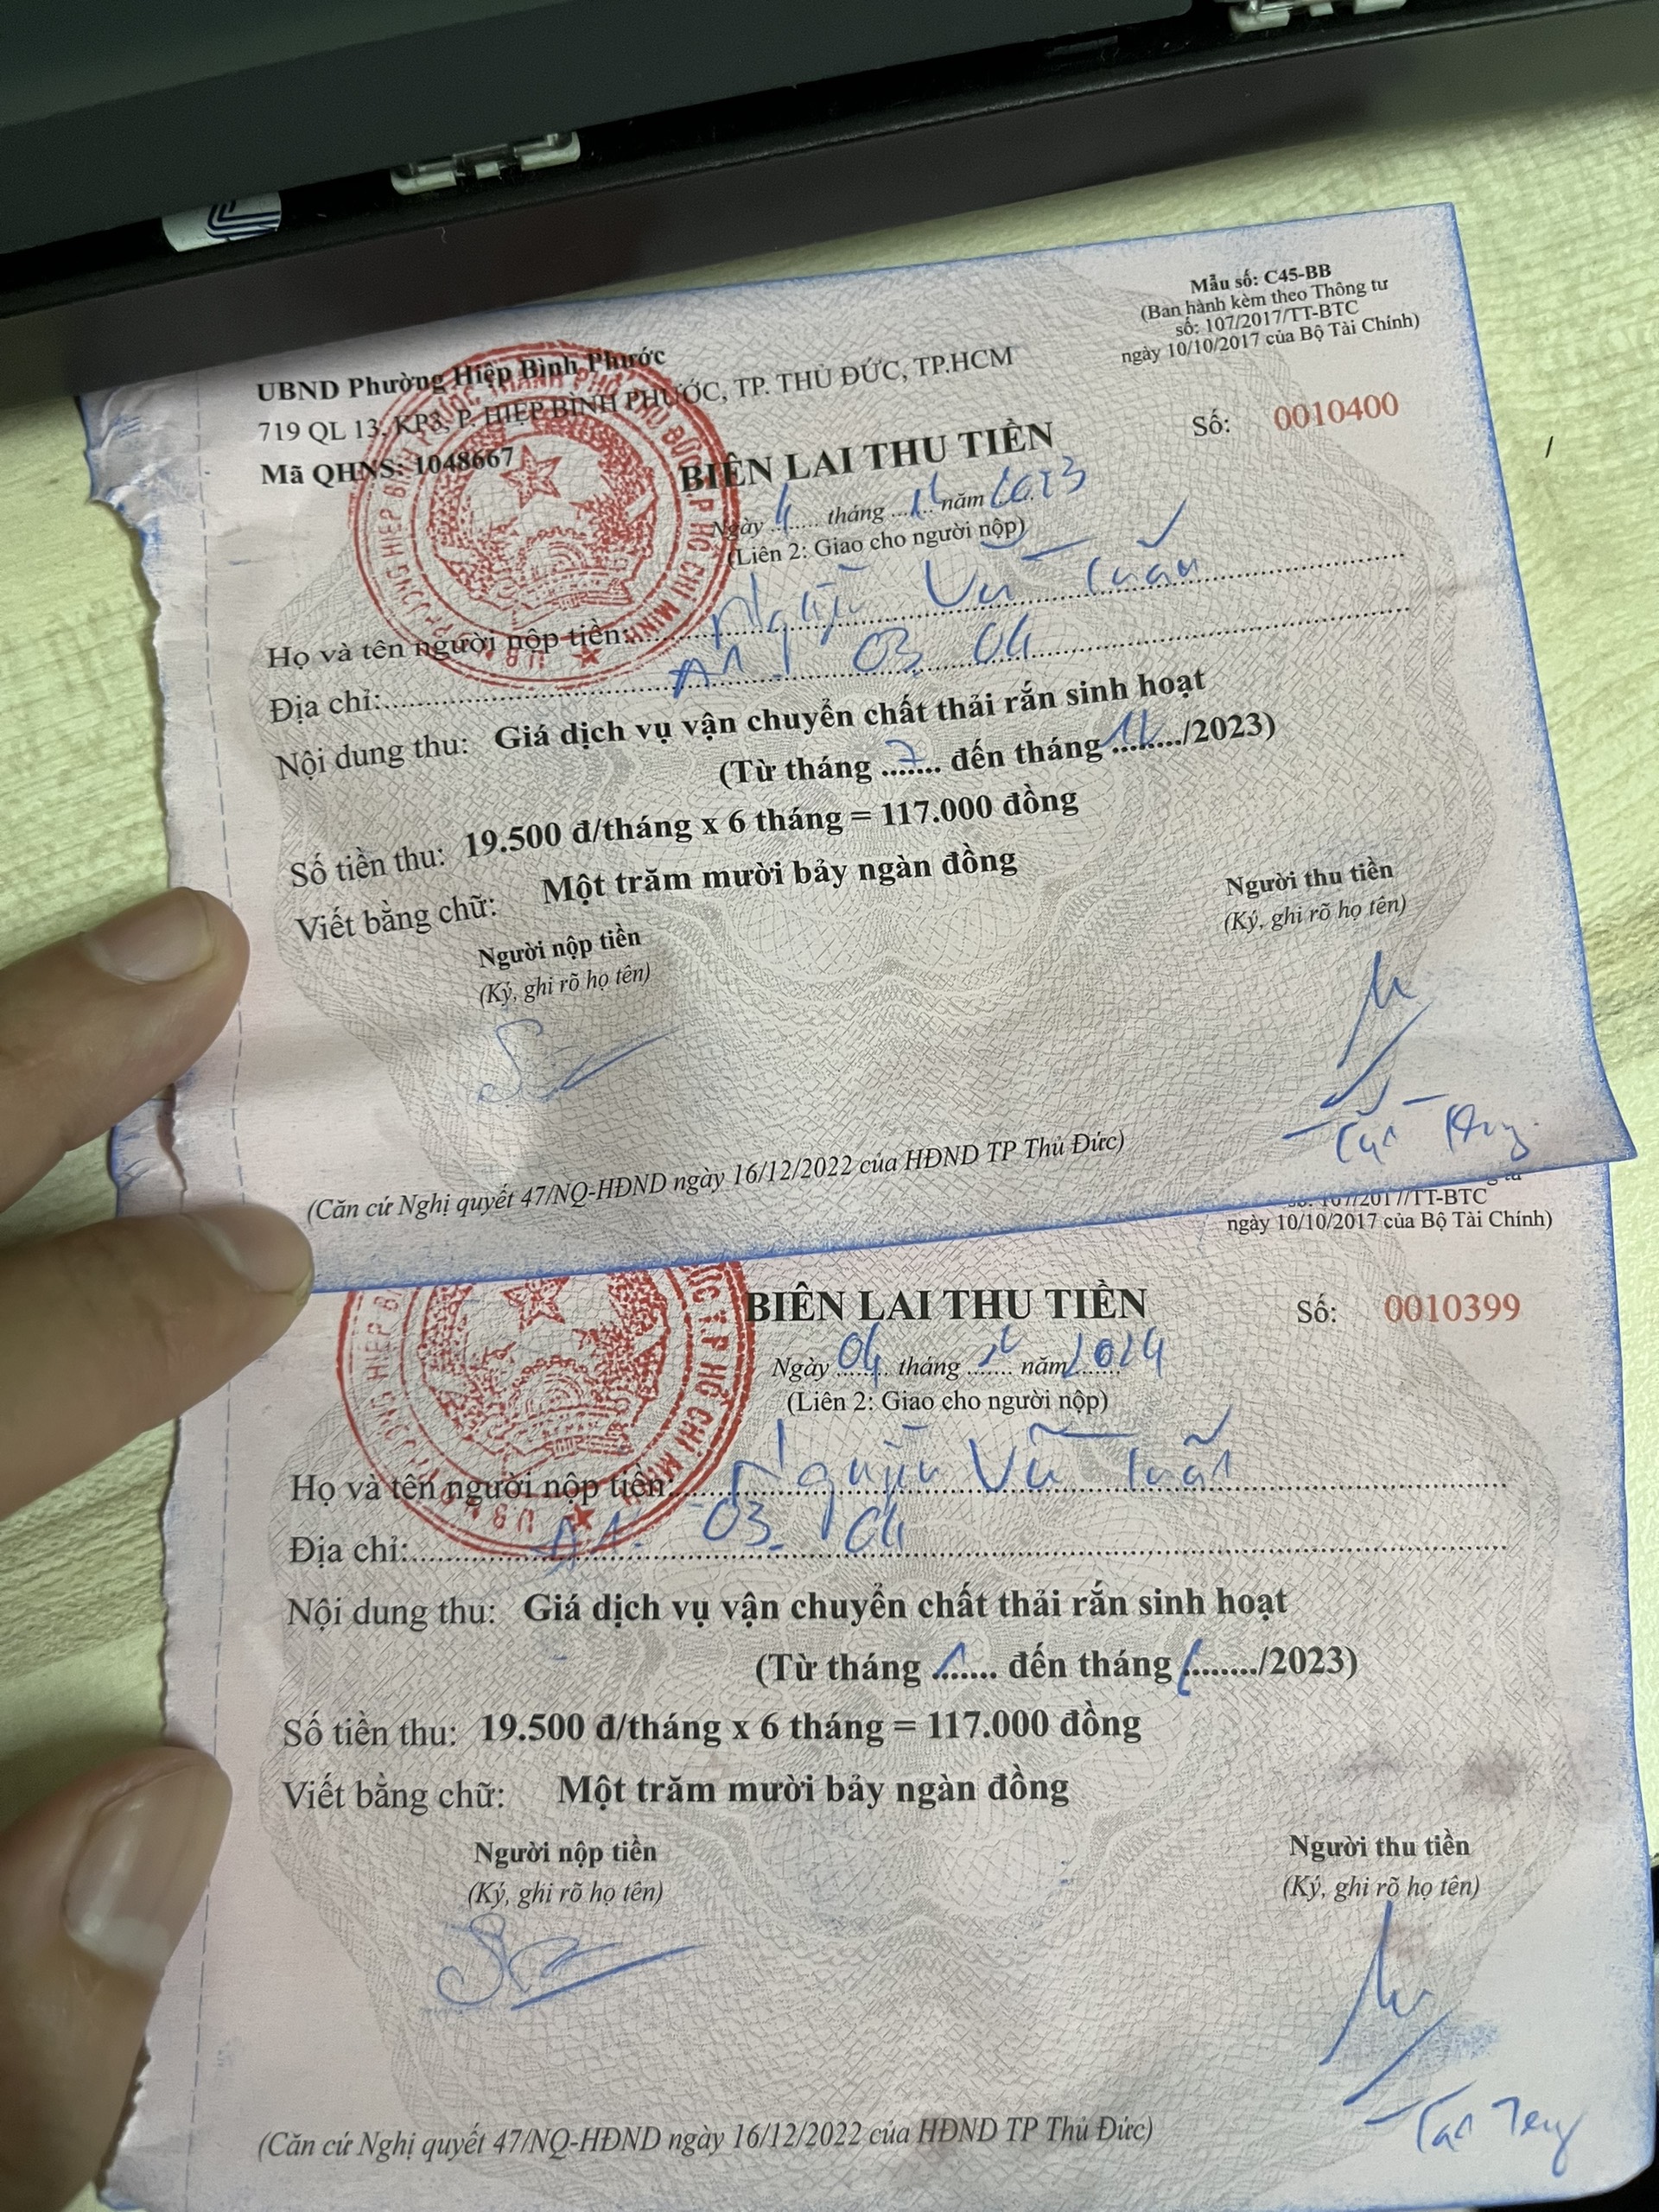 Mẫu số: C45-BB
(Ban hành kèm theo Thông tư
số: 107/2017/TT-BTC
ngày 10/10/2017 của Bộ Tài Chính)
UBND Phường Hiệp Bình Phước
719 QL 13, KP3, P. HIỆP BÌNH PHƯỚC, TP. THỦ ĐỨC, TP.HCM
Mã QHNS: 1048667
Số: 0010400
BIÊN LAI THU TIỀN
Ngày 4 tháng ...... năm 2023
(Liên 2: Giao cho người nộp)
Họ và tên người nộp tiền: Nguyễn Vũ Tuấn
Địa chỉ: A1 03 04
Nội dung thu: Giá dịch vụ vận chuyển chất thải rắn sinh hoạt
(Từ tháng 7 đến tháng 12/2023)
Số tiền thu: 19.500 đ/tháng x 6 tháng = 117.000 đồng
Viết bằng chữ: Một trăm mười bảy ngàn đồng
Người nộp tiền Người thu tiền
(Ký, ghi rõ họ tên) (Ký, ghi rõ họ tên)
(Căn cứ Nghị quyết 47/NQ-HĐND ngày 16/12/2022 của HĐND TP Thủ Đức)
số: 107/2017/TT-BTC
ngày 10/10/2017 của Bộ Tài Chính)
BIÊN LAI THU TIỀN
Số: 0010399
Ngày 04 tháng ...... năm 2024
(Liên 2: Giao cho người nộp)
Họ và tên người nộp tiền: Nguyễn Vũ Tuấn
Địa chỉ: A1. 03. 04
Nội dung thu: Giá dịch vụ vận chuyển chất thải rắn sinh hoạt
(Từ tháng 1 đến tháng 6/2023)
Số tiền thu: 19.500 đ/tháng x 6 tháng = 117.000 đồng
Viết bằng chữ: Một trăm mười bảy ngàn đồng
Người nộp tiền Người thu tiền
(Ký, ghi rõ họ tên) (Ký, ghi rõ họ tên)
(Căn cứ Nghị quyết 47/NQ-HĐND ngày 16/12/2022 của HĐND TP Thủ Đức)